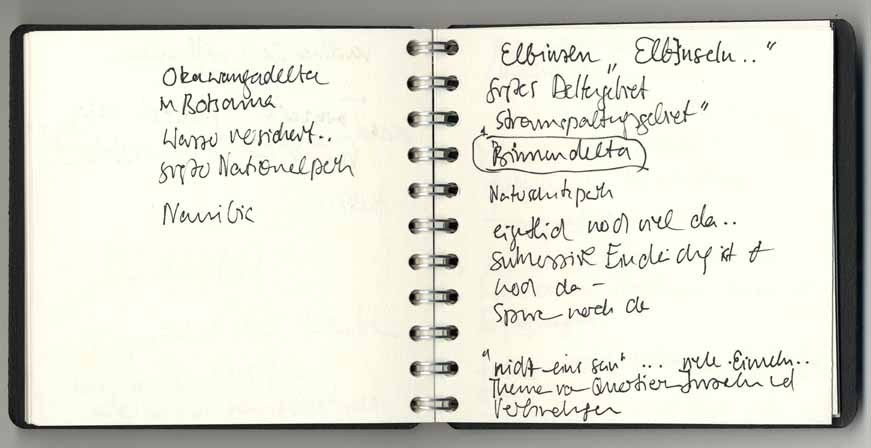 Okawangadelta
in Botsanna
Wasser versichert..
großer Nationalpark
Namibia
Elbinsen „Elbinseln.."
großes Deltagebiet
"Stromspaltungsgebiet"
"Binnendelta
Naturschutzpark
eigentlich noch viel da..
sukzessive Eindeichung ist
noch da –
Spuren noch da
"nicht eins sein" ... viele Einzeln..
Thema von Quartier Inseln und